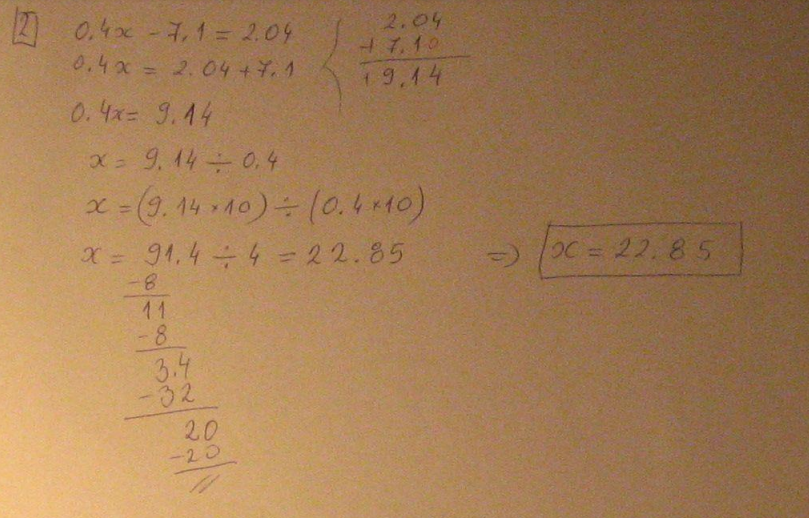 2
0.4x - 7.1 = 2.04
0.4x = 2.04 + 7.1
2.04
+ 7.10
+9.14
0.4x = 9.14
x = 9.14 ÷ 0.4
x = (9.14 × 10) ÷ (0.4 × 10)
x = 91.4 ÷ 4 = 22.85 => x = 22.85
-8
11
-8
3.4
-32
20
-20
//